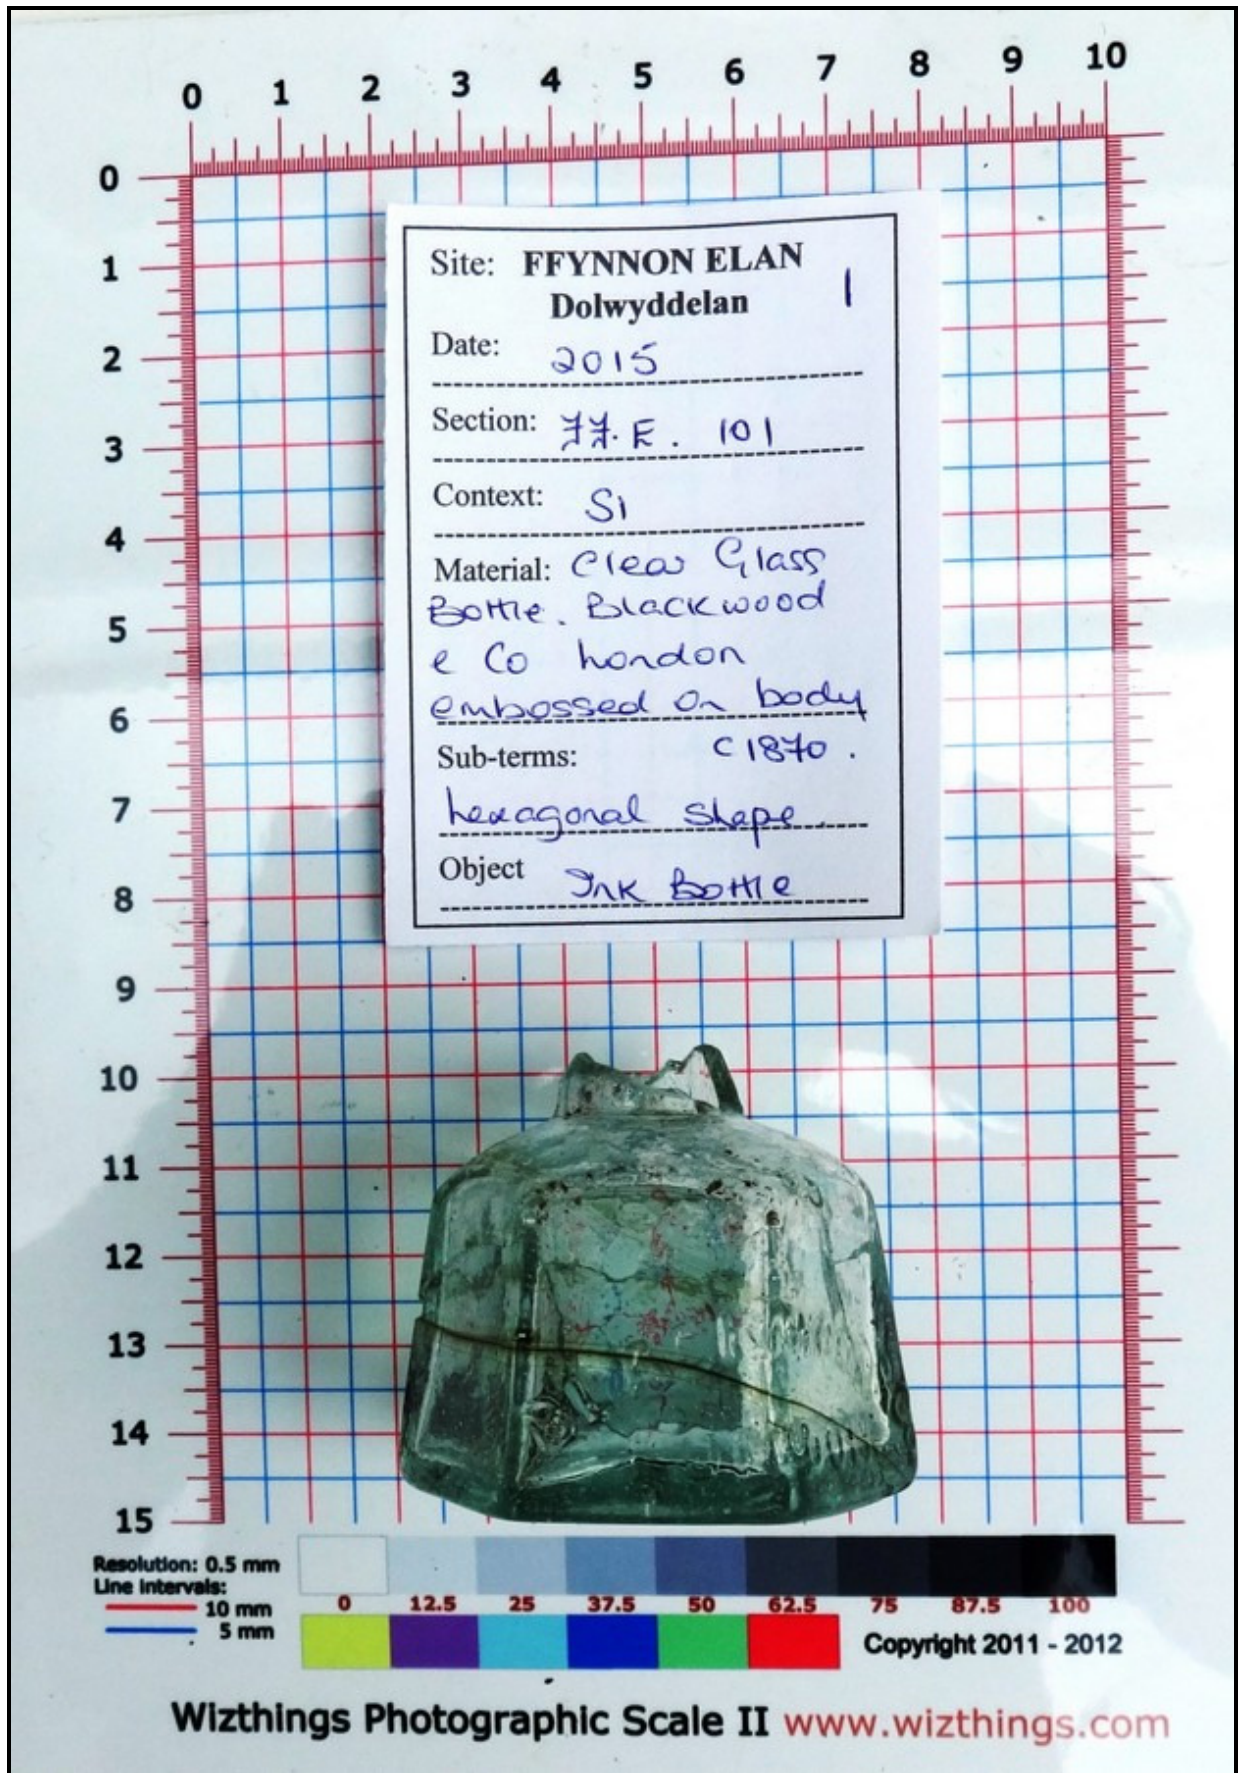 0 1 2 3 4 5 6 7 8 9 10
0
1
2
3
4
5
6
7
8
9
10
11
12
13
14
15
Site: FFYNNON ELAN
Dolwyddelan 1
Date: 2015
Section: FF.E. 101
Context: S1
Material: Clear Glass
Bottle. Blackwood
e Co London
embossed on body
Sub-terms: C1870.
hexagonal shape.
Object Ink Bottle
Resolution: 0.5 mm
Line intervals:
10 mm
5 mm
0 12.5 25 37.5 50 62.5 75 87.5 100
Copyright 2011 - 2012
Wizthings Photographic Scale II www.wizthings.com